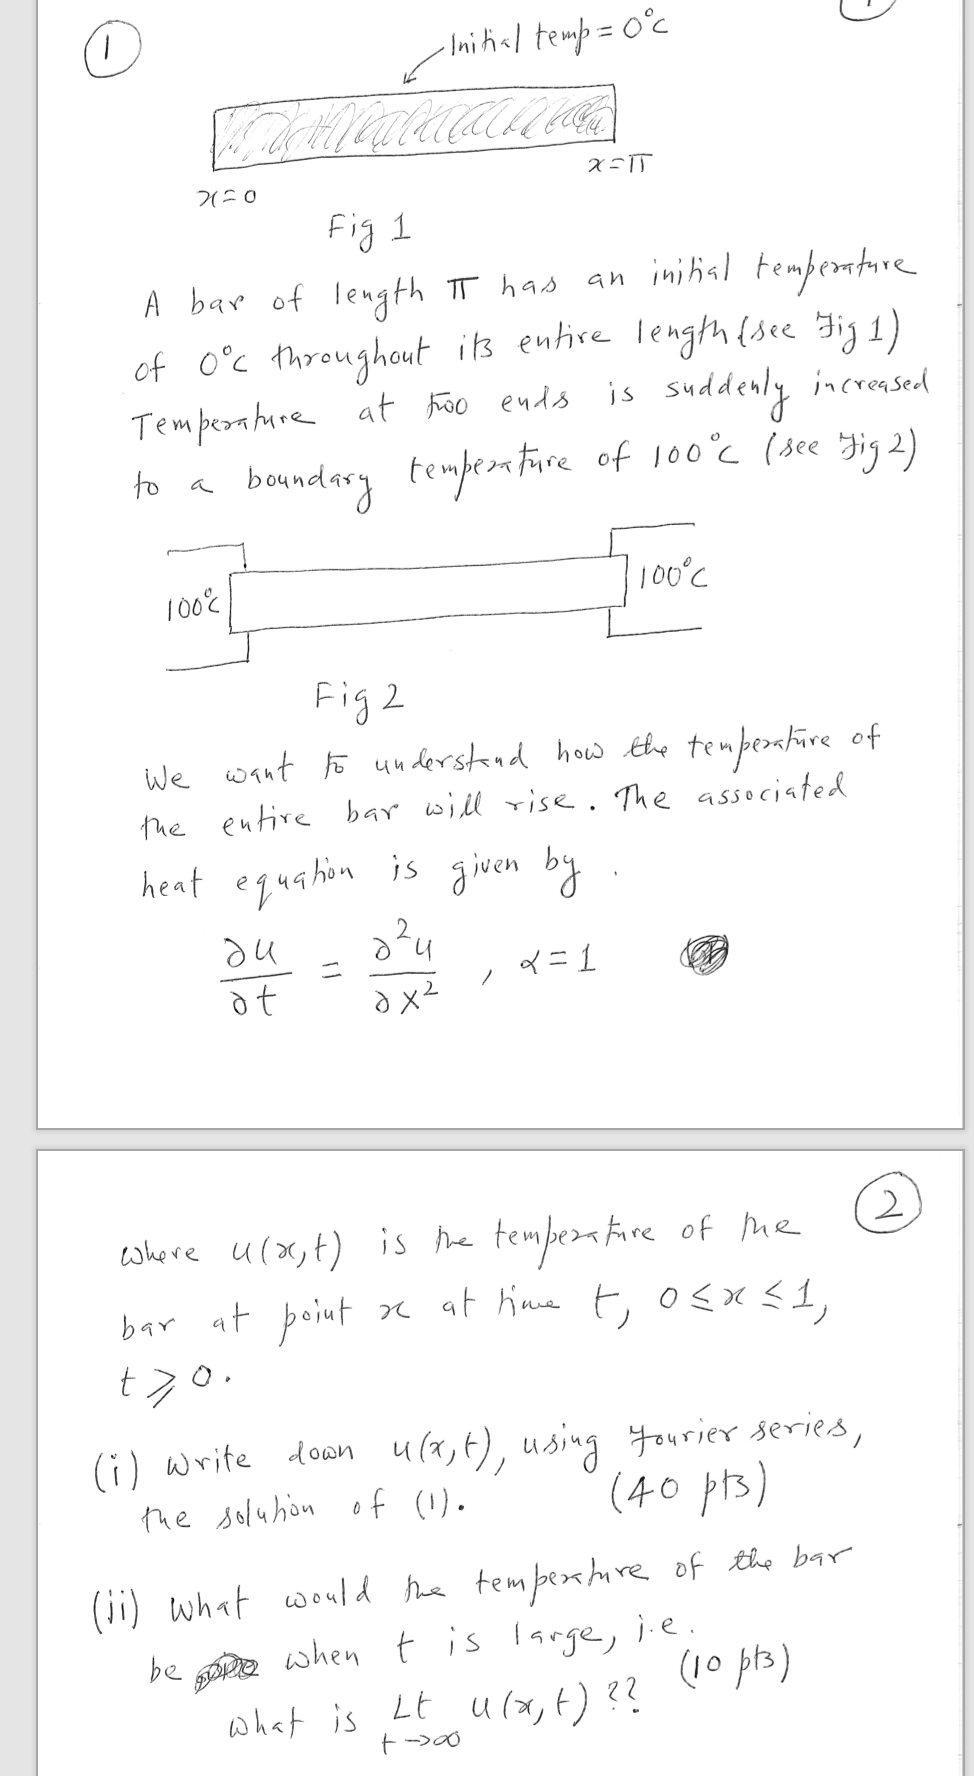 1
Initial temp = 0°c
x=0
x=π
Fig 1
A bar of length π has an initial temperature
of 0°c throughout its entire length (see Fig 1)
Temperature at two ends is suddenly increased
to a boundary temperature of 100°c (see Fig 2)
100°c
100°c
Fig 2
We want to understand how the temperature of
the entire bar will rise. The associated
heat equation is given by
∂u/∂t = ∂²u/∂x², α=1
2
where u(x,t) is the temperature of the
bar at point x at time t, 0≤x≤1,
t≥0.
(i) Write down u(x,t), using Fourier series,
the solution of (1). (40 pts)
(ii) What would the temperature of the bar
be when t is large, i.e.
what is Lt t→∞ u(x,t)?? (10 pts)